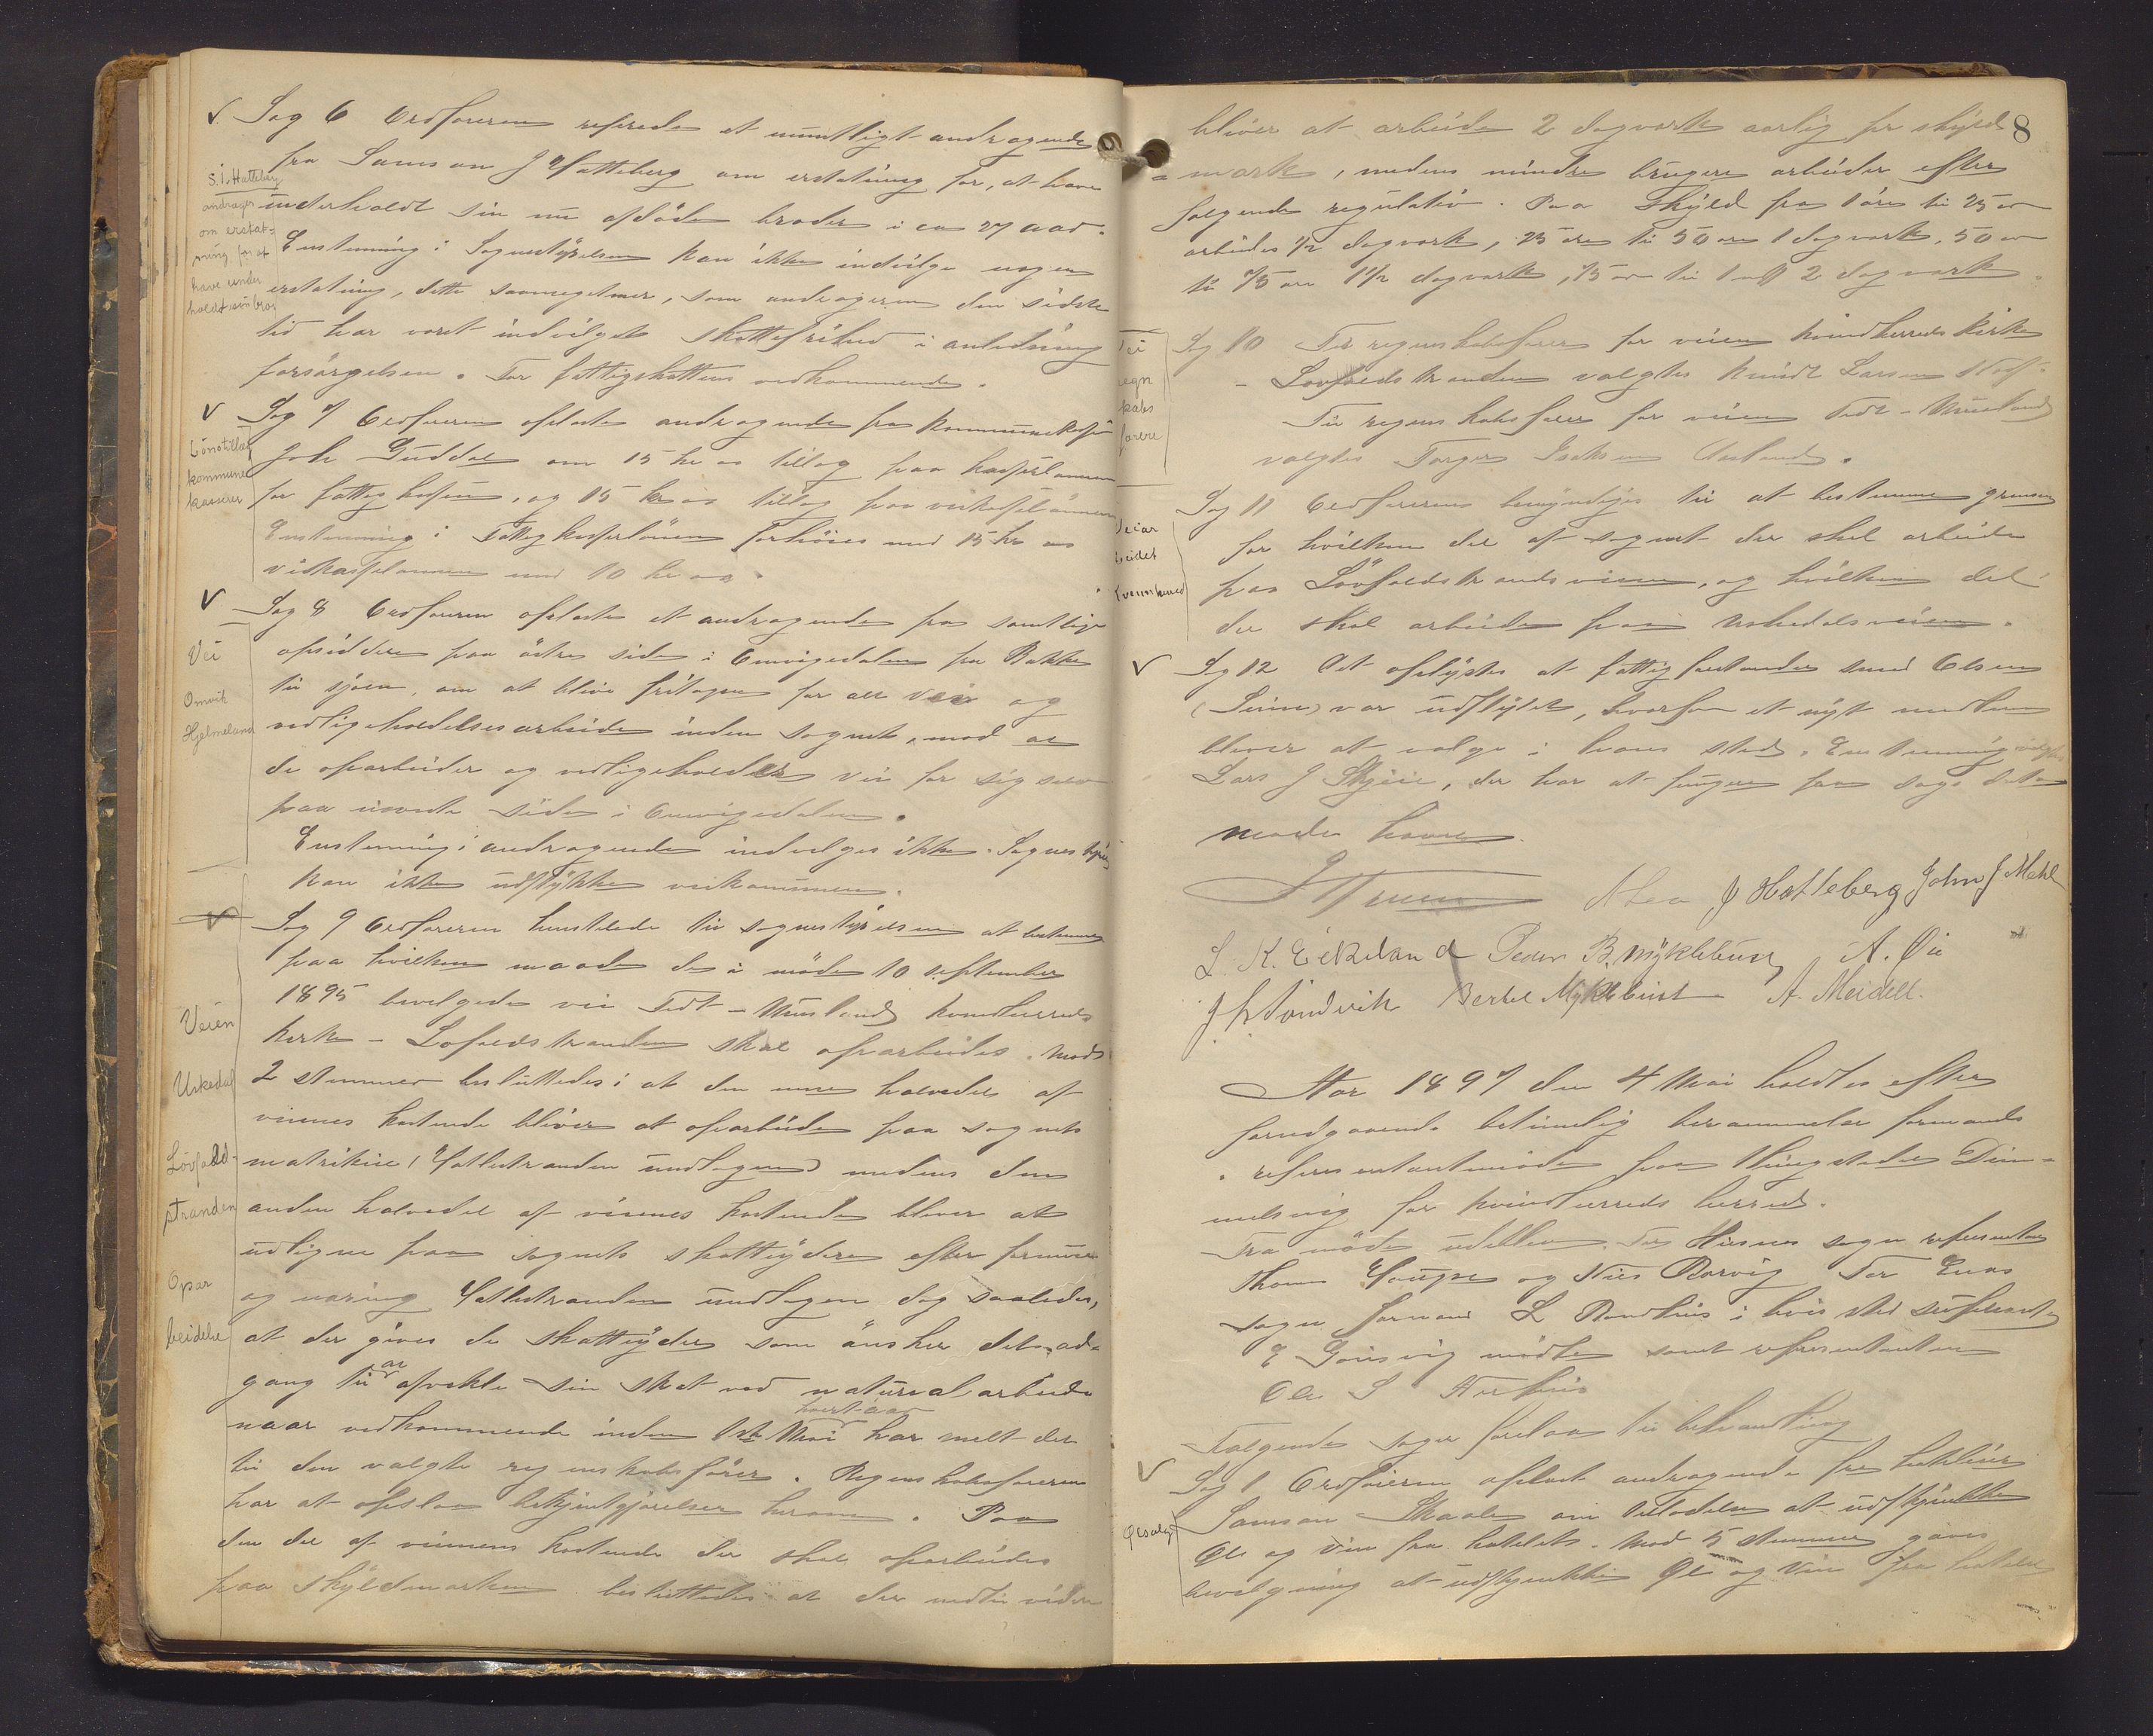 ✓ Sag 6 Ordføreren refererede et mundtligt andragende
fra Samson J Hatteberg om erstatning for, at have
S. J. Hatteberg
andrager
om erstat-
ning for at
have under
holdt sin bror
underholdt sin nu afdøde broder i ca 27 aar.
Enstemmig: Sognestyrelsen kan ikke indvilge nogen
erstatning, dette saameget mer, som andrageren den sidste
tid har været indvilget skattefrihed i anledning
forsørgelsen. For fattigskattens vedkommende.
✓ Sag 7 Ordføreren oplæste andragende fra kommunekasserer
Lønstillæg
kommune
kasserer
Joh Guddal om 15 kr as tillæg paa kasserlønnen
for fattigkassen, og 15 kr as tillæg paa veikasselønnen
Enstemmig: Fattigkasselønnen forhøies med 15 kr as
veikasselønnen med 10 kr as.
✓ Sag 8 Ordføreren oplæste et andragende fra samtlige
Vei
Omvik
Hjelmeland
opsiddere paa østre side i Omvigedalen fra Bakke
til sjøen, om at blive fritagen for alt vei og
vedligeholdelsesarbeide inden sognet, mod at
de oparbeider og vedligeholder vei for sig selv
paa nævnte side i Omvigedalen.
Enstemmig: andragende indvilges ikke. Sognestyret
kan ikke udstykke veikommunen.
✓ Sag 9 Ordføreren henstillede til sognestyrelsen at bestemme
paa hvilken maade de i møde 10 september
1895 bevilgede vei Tedt - Musland Kvindherreds
Veien
Uskedal
Løvfald-
stranden
Opar
beidelse
kirke - Lofaldstranden skal oparbeides. Mod
2 stemmer besluttedes: at den ene halvdel af
veienes kostende bliver at oparbeide paa sognets
matrikul (Hattestranden undtagen) medens den
anden halvdel af veienes kostende bliver at
udligne paa sognets skatteydere efter formue
og næring Hattestranden undtagen dog saaledes,
at der gives de skatteydere som ønsker det, ad-
gang til at afvekle sin skat ved naturalarbeide
naar vedkommende inden 1ste Mai hvert aar har meldt det
til den valgte regnskabsfører. Regnskabsføreren
har at opslaa bekjentgjørelser herom. Paa
den del af veienens kostende der skal oparbeides
paa skyldmarken besluttedes at der indtil videre
8
bliver at arbeide 2 dagverk aarlig pr skyld
mark, medens mindre brugere arbeider efter
følgende regulativ. Paa Skyld fra 1 øre til 25 øre
arbeides 1/2 dagverk, 25 øre til 50 øre 1 dagverk, 50 øre
til 75 øre 1 1/2 dagverk, 75 øre til 1 mark 2 dagverk.
Vei
regn
skabs
førere
Sag 10 Til regnskabsfører for veien Kvindherreds Kirke
- Lovfaldstranden valgtes Knudt Larsen
Til regnskabsfører for veien Tedt - Musland
valgtes Torger Isaksen
Veiar
beidet
Kvennherred
Sag 11 Ordføreren bemyndiges til at bestemme grensen
for hvilken del af sognet der skal arbeide
paa Løvfaldstrandsveien, og hvilken del
der skal arbeide paa Uskedalsveien.
✓ Sag 12 Det oplystes at fattigforstander Olsen
var udflyttet, hvorfor et nyt medlem
bliver at vælge i hans sted. Enstemmig valgtes
Lars J Skeie, der har at fungere fra dags dato
møde hævet
J Hatteberg John J Mehl
L. K. Eikeland Peder B. Myklebust A. Øie
J Sundvik Bertel Myklebust A. Meidell.
Aar 1897 den 4 Mai holdtes efter
forudgaaende betimelig berammelse formands
&amp; representantmøde paa thingstedet Dim-
melsvig for Kvindherreds herred.
Fra møde udeblev. For Husnes sogn repræsentant
Haugse og Nils Rørvig For Enæs
sogn formand L Rondhus i hvis sted suppleant
E Gausvig mødte samt representanten
Ole S
Følgende sager forelaa til behandling
✓ Sag 1 Ordføreren oplæste andragende fra hoteleier
Ølsalg
Samson Skaale om tilladelse at udskjænke
Øl og Vin fra hotellet. Mod 5 stemmer gaves
bevilgning at udskjænke Øl og Vin fra hotellet